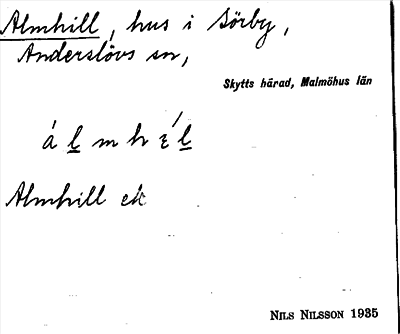 Almhill, hus i Sörby,
Anderslövs sn,
Skytts härad, Malmöhus län
á l̲ m h ɛ́ l̲
Almhill ek
NILS NILSSON 1935